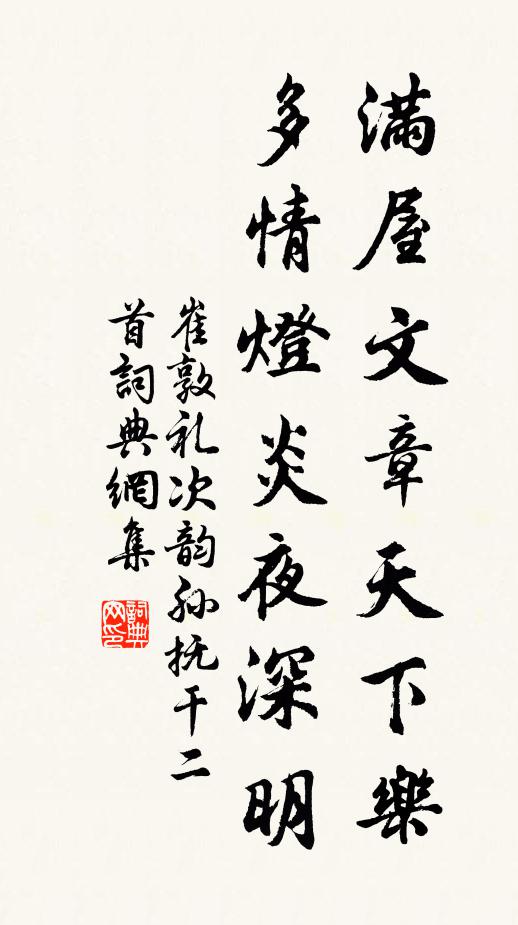 滿屋文章天下樂
多情燈炎夜深明
崔敦礼次韵孙抚干二
首詞典網集
詞典
网印